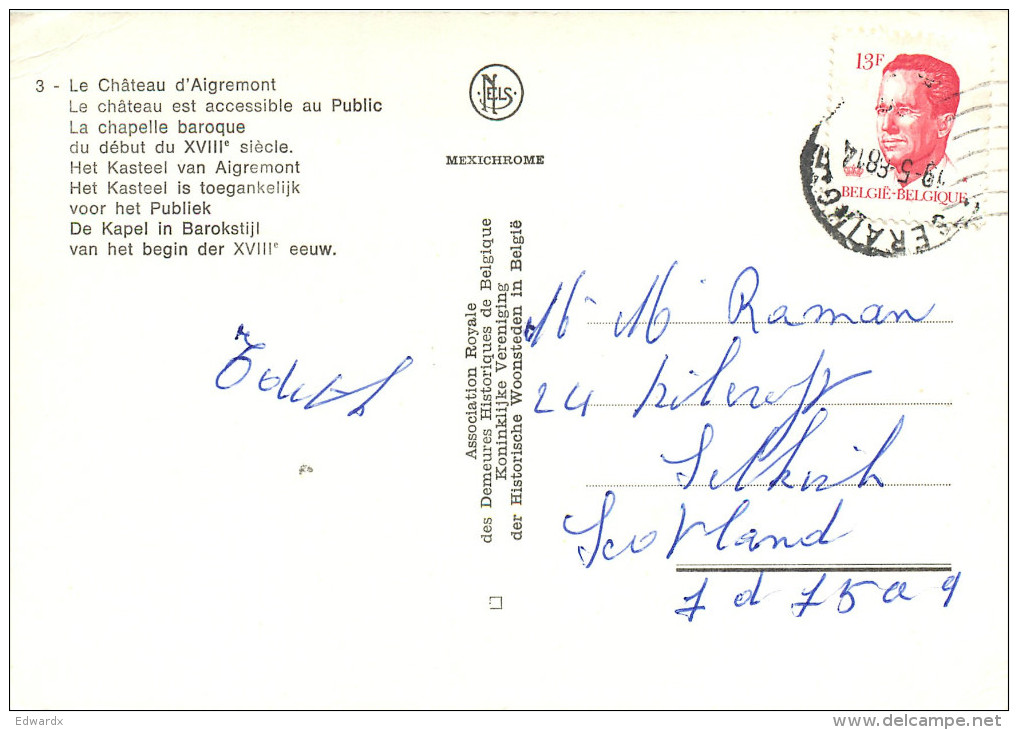 3 - Le Château d'Aigremont
Le château est accessible au Public
La chapelle baroque
du début du XVIIIe siècle.
Het Kasteel van Aigremont
Het Kasteel is toegankelijk
voor het Publiek
De Kapel in Barokstijl
van het begin der XVIIIe eeuw.
NELS
MEXICHROME
Association Royale
des Demeures Historiques de Belgique
Koninklijke Vereniging
der Historische Woonsteden in België
13F
BELGIË-BELGIQUE
SERAING
Edith
Mr Mr Raman
24
Selkirk
Scotland
Edwardx
delcampe.net